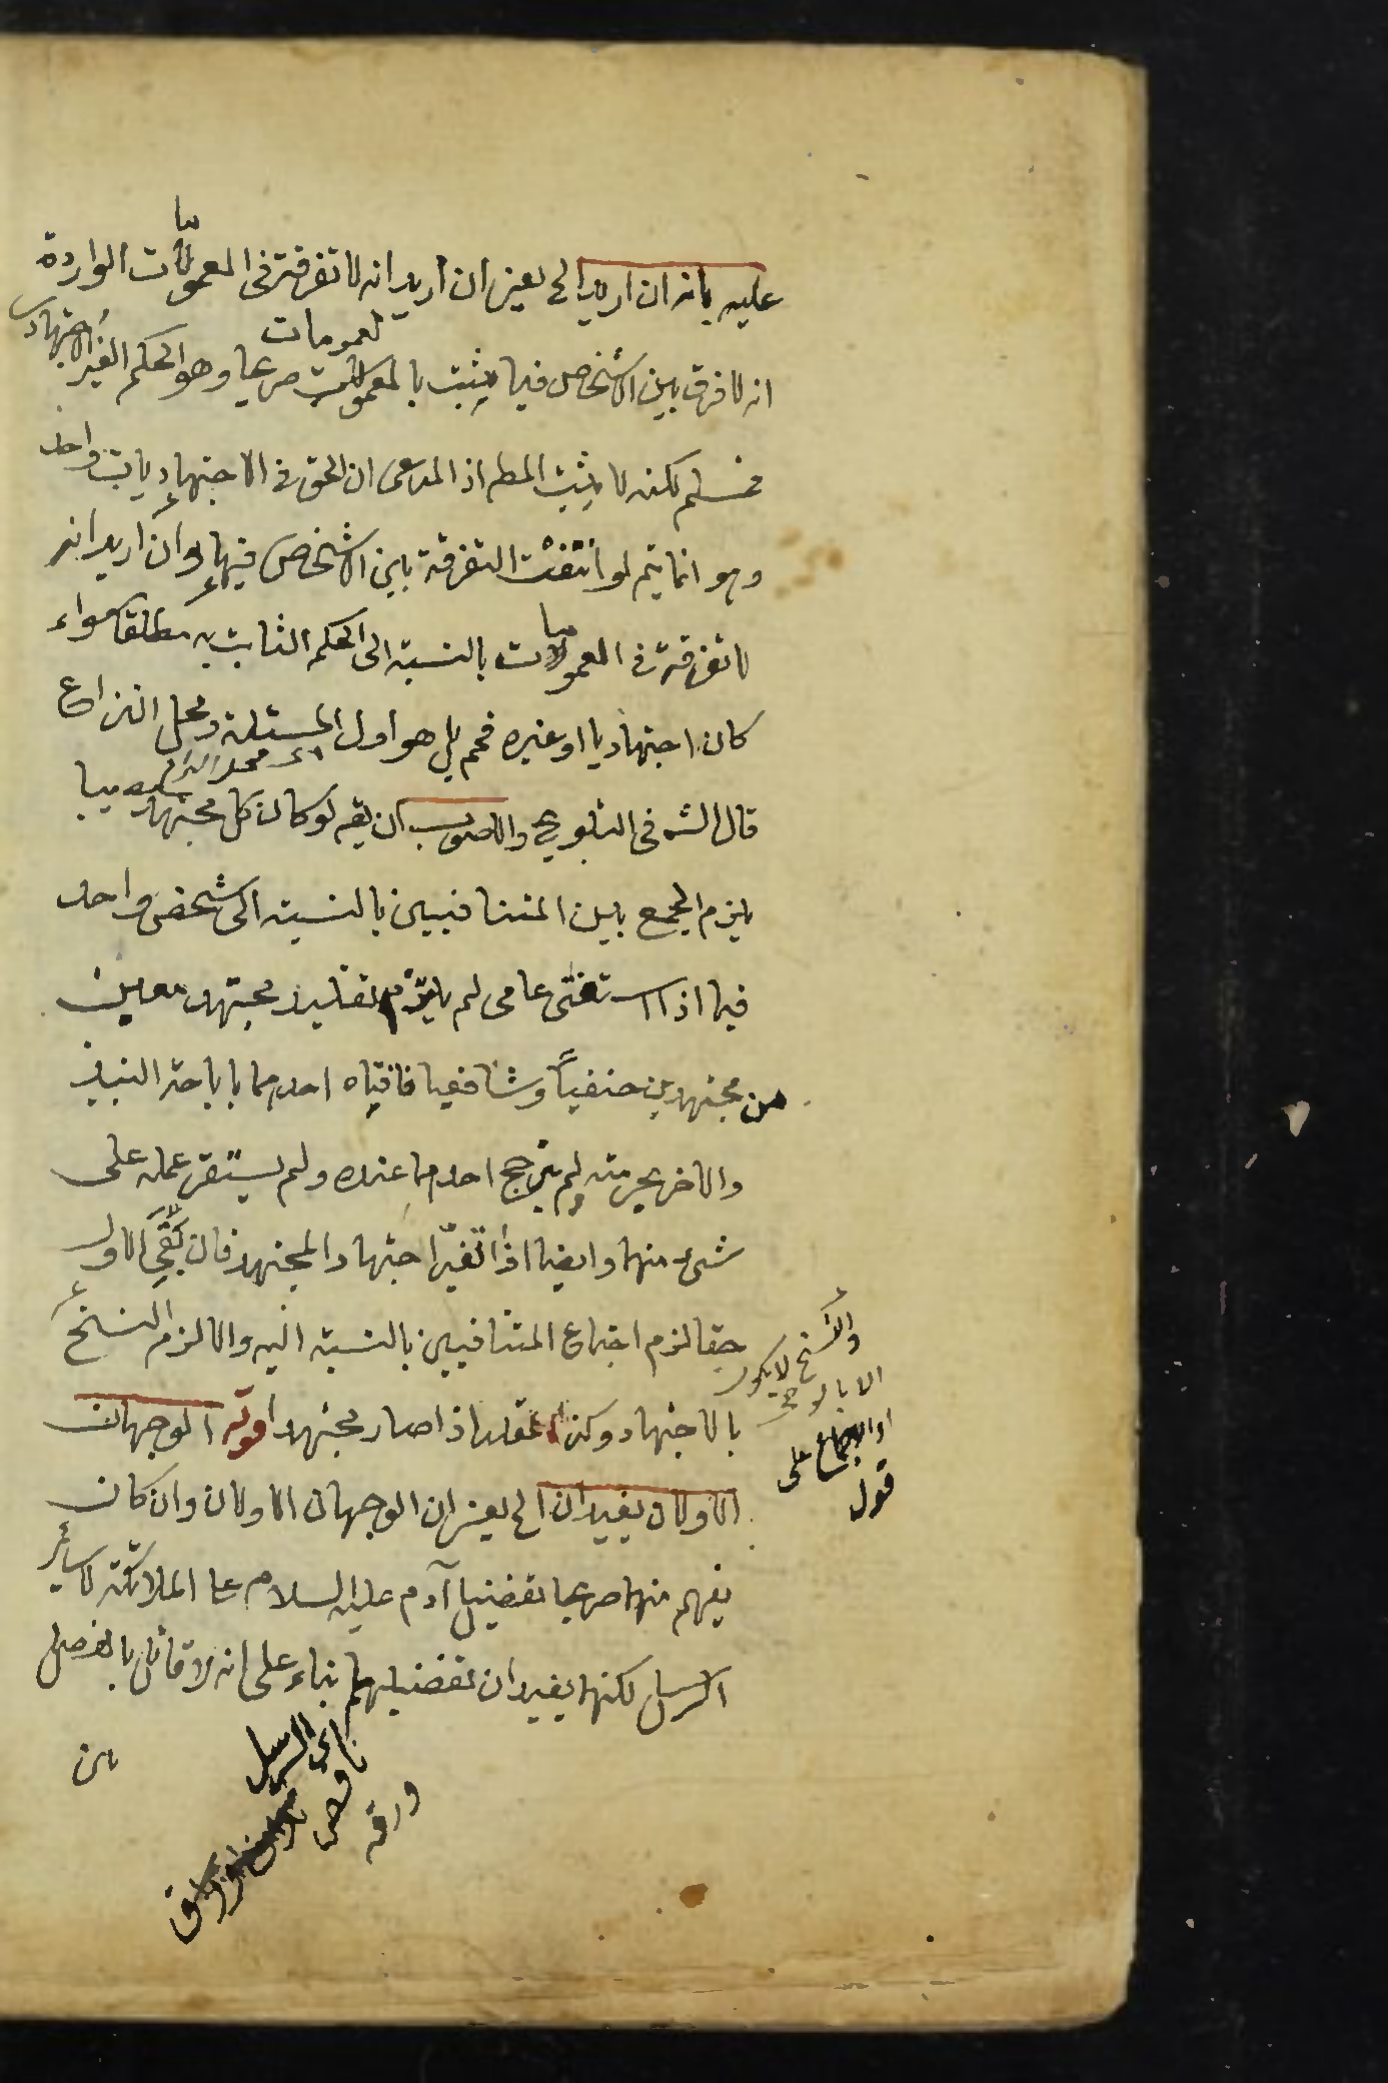 عليه بانه ان اريد الخ يعنى ان اريد انه لا تفرقة فى العمومات الواردة
انه لا فرق بين الاشخاص فيما يثبت بالعمومات صريحا وهو الحكم الغير الاجتهادى
فمسلم لكنه لا يثبت المط اذ المدعى ان الحق فى الاجتهاديات واحد
وهو انما يتم لو انتفت التفرقة بين الاشخاص فيها وان اريد انه
لا تفرقة فى العمومات بالنسبة الى الحكم الثابت به مطلقا سواء
كان اجتهاديا او غيره فمم بل هو اول المسئلة ومحل النزاع
قال الشه فى التلويح والاصوب ان يقه لو كان كل مجتهد مصيبا
يلزم الجمع بين المتنافيين بالنسبة الى شخص واحد
فيما اذا استفتى عامى لم يلتزم تقليد مجتهد معين
من مجتهدين حنفياً وشافعيا فافتياه احدهما باباحة النبيذ
والاخر بحرمته ولم يترجح احدهما عنده ولم يستقر عمله على
شىء منهما وايضا اذا تغيّر اجتهاد المجتهد فان بقى الاول
حقا لزم اجتماع المتنافيين بالنسبة اليه والا لزم النسخ
بالاجتهاد وكذا المقلد اذا صار مجتهدا قوله الوجهان
الاولان يفيدان الخ يعنى ان الوجهان الاولان وان كان
يفهم منهما صريحا تفضيل آدم عليه السلام على الملائكة لا سائر
الرسل لكنهما يفيدان تفضيلهم بناء على انه لا قائل بالفصل
بين
والنسخ لا يكون
الا بالوحى
او الاجماع على
قول
اى الرسل
ناقص
ورقه